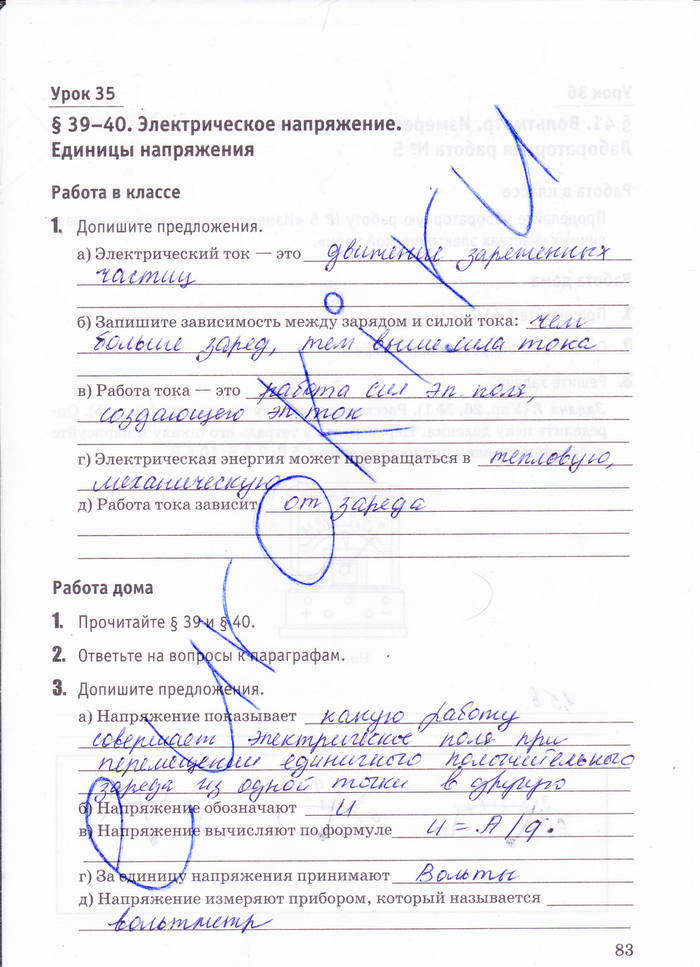 Урок 35
§ 39–40. Электрическое напряжение.
Единицы напряжения
Работа в классе
1. Допишите предложения.
а) Электрический ток — это движение заряженных
частиц
б) Запишите зависимость между зарядом и силой тока: чем
больше заряд, тем выше сила тока
в) Работа тока — это работа сил эл. поля,
создающего эл. ток
г) Электрическая энергия может превращаться в тепловую,
механическую
д) Работа тока зависит от заряда
Работа дома
1. Прочитайте § 39 и § 40.
2. Ответьте на вопросы к параграфам.
3. Допишите предложения.
а) Напряжение показывает какую работу
совершает электрическое поле при
перемещении единичного положительного
заряда из одной точки в другую
б) Напряжение обозначают U
в) Напряжение вычисляют по формуле U = A/q.
г) За единицу напряжения принимают Вольты
д) Напряжение измеряют прибором, который называется
вольтметр
83